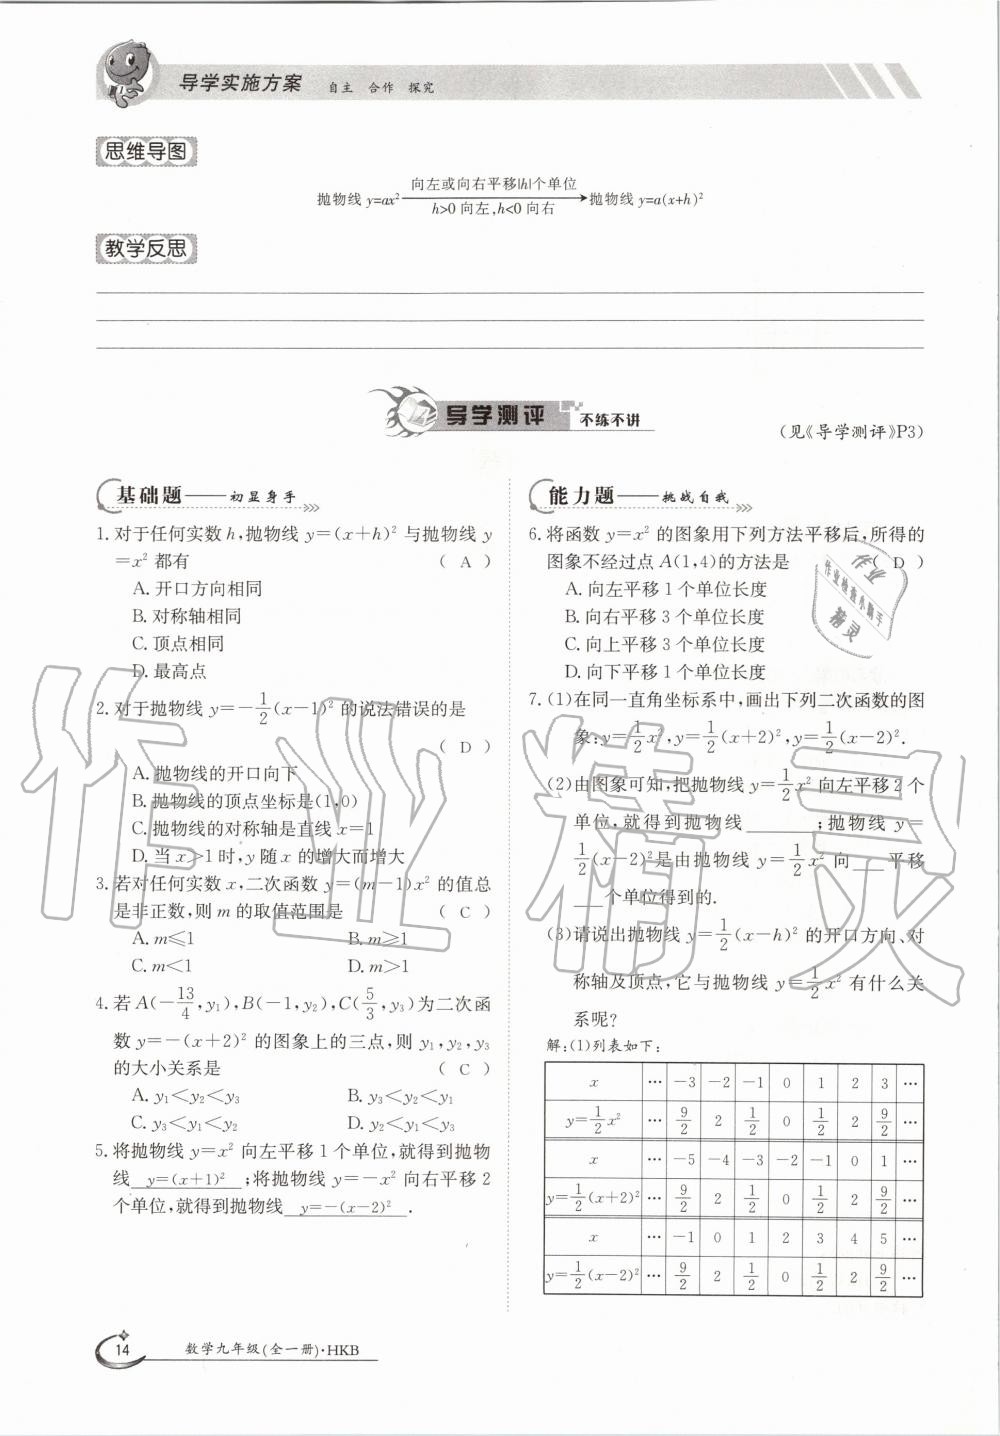 导学实施方案 自主 合作 探究
思维导图
向左或向右平移|h|个单位
抛物线 y=ax² → 抛物线 y=a(x+h)²
h>0 向左,h<0 向右
教学反思
导学测评 不练不讲
(见《导学测评》P3)
基础题——初显身手
1. 对于任何实数 h,抛物线 y=(x+h)² 与抛物线 y
=x² 都有 ( A )
A. 开口方向相同
B. 对称轴相同
C. 顶点相同
D. 最高点
2. 对于抛物线 y=-1/2(x-1)² 的说法错误的是
( D )
A. 抛物线的开口向下
B. 抛物线的顶点坐标是(1,0)
C. 抛物线的对称轴是直线 x=1
D. 当 x>1 时,y 随 x 的增大而增大
3. 若对任何实数 x,二次函数 y=(m-1)x² 的值总
是非正数,则 m 的取值范围是 ( C )
A. m≤1 B. m≥1
C. m<1 D. m>1
4. 若 A(-13/4,y₁),B(-1,y₂),C(5/3,y₃)为二次函
数 y=-(x+2)² 的图象上的三点,则 y₁,y₂,y₃
的大小关系是 ( C )
A. y₁<y₂<y₃ B. y₃<y₂<y₁
C. y₃<y₁<y₂ D. y₂<y₁<y₃
5. 将抛物线 y=x² 向左平移 1 个单位,就得到抛物
线 y=(x+1)² ;将抛物线 y=-x² 向右平移 2
个单位,就得到抛物线 y=-(x-2)² .
能力题——挑战自我
6. 将函数 y=x² 的图象用下列方法平移后,所得的
图象不经过点 A(1,4)的方法是 ( D )
A. 向左平移 1 个单位长度
B. 向右平移 3 个单位长度
C. 向上平移 3 个单位长度
D. 向下平移 1 个单位长度
7. (1)在同一直角坐标系中,画出下列二次函数的图
象:y=1/2x²,y=1/2(x+2)²,y=1/2(x-2)².
(2)由图象可知,把抛物线 y=1/2x² 向左平移 2 个
单位,就得到抛物线 ______ ;抛物线 y=
1/2(x-2)²是由抛物线 y=1/2x² 向 __ 平移
__ 个单位得到的.
(3)请说出抛物线 y=1/2(x-h)² 的开口方向、对
称轴及顶点,它与抛物线 y=1/2x² 有什么关
系呢?
解:(1)列表如下:
x … -3 -2 -1 0 1 2 3 …
y=1/2x² … 9/2 2 1/2 0 1/2 2 9/2 …
x … -5 -4 -3 -2 -1 0 1 …
y=1/2(x+2)² … 9/2 2 1/2 0 1/2 2 9/2 …
x … -1 0 1 2 3 4 5 …
y=1/2(x-2)² … 9/2 2 1/2 0 1/2 2 9/2 …
14 数学九年级(全一册)·HKB
作业精灵
作业
作业检查小助手
精灵